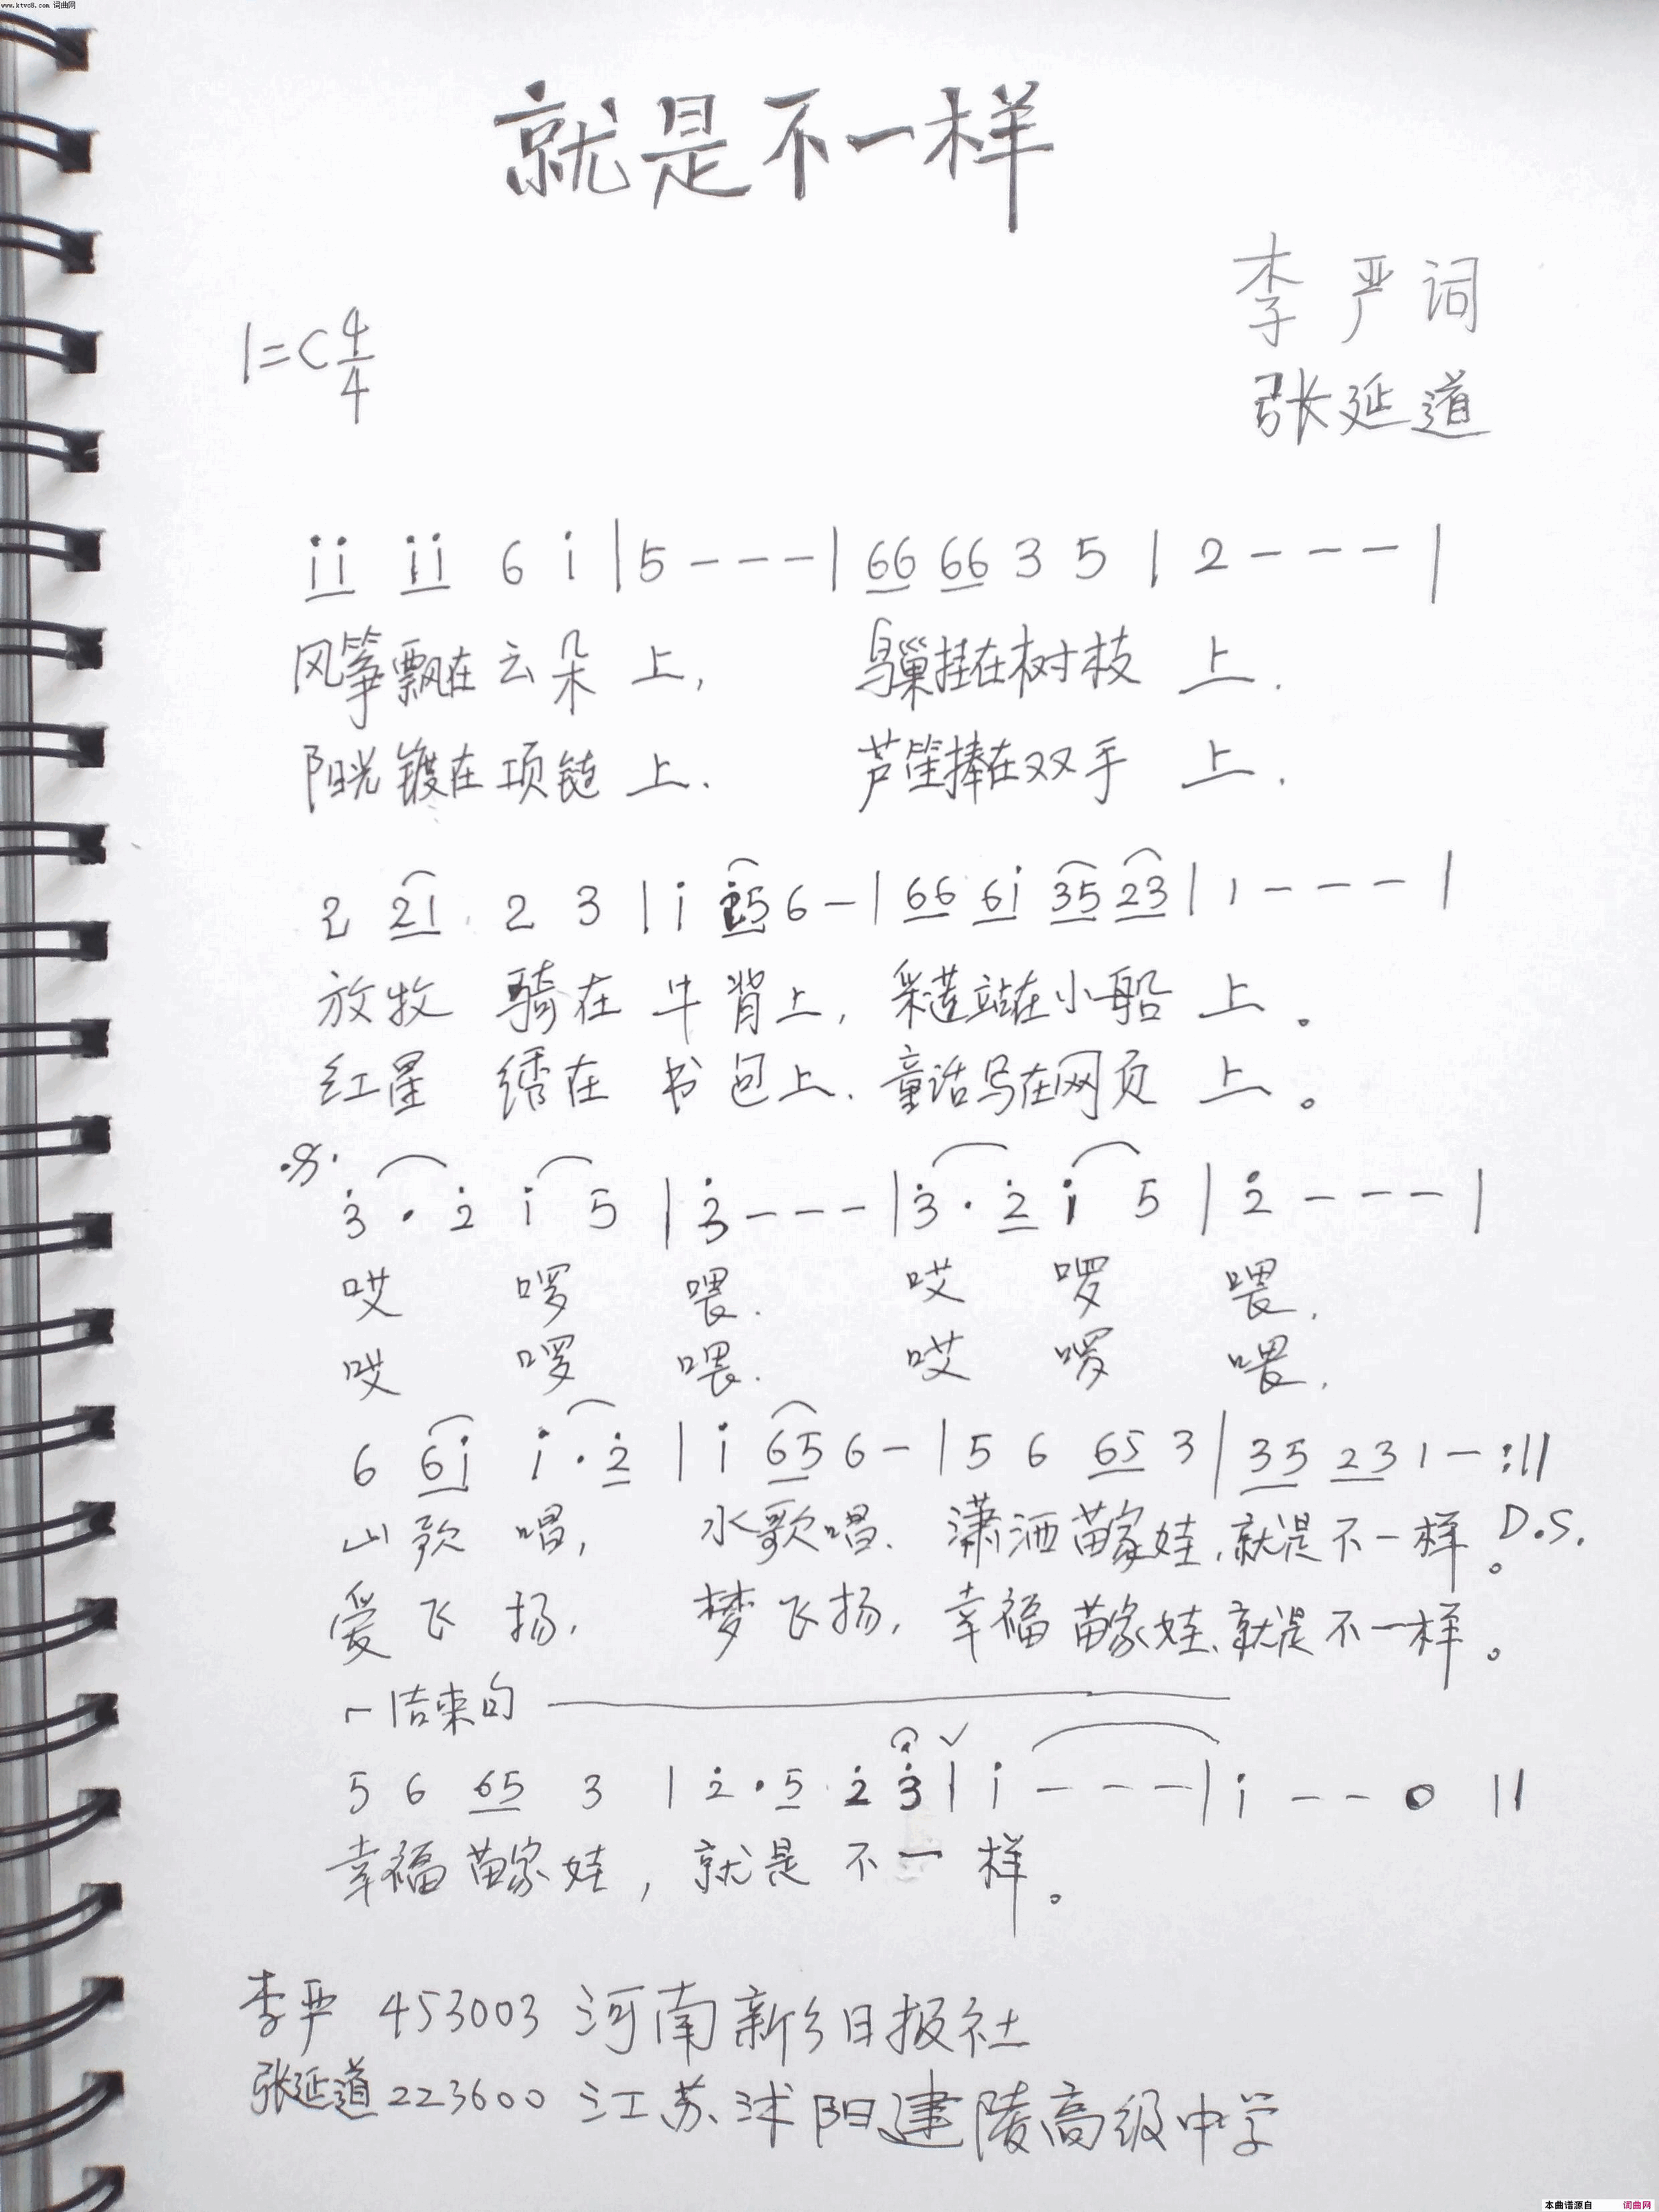 www.ktvc8.com 词曲网
就是不一样
李严词
1=C 4/4
张延道
i̇i̇ i̇i̇ 6 i̇ | 5 - - - | 66 66 3 5 | 2 - - - |
风筝飘在云朵上, 鸟巢挂在树枝上.
阳光镀在项链上. 芦笙捧在双手上.
2 21 2 3 | i̇ i̇5 6 - | 66 6i̇ 35 23 | 1 - - - |
放牧骑在牛背上, 采莲站在小船上。
红星绣在书包上. 童话写在网页上。
3̇ · 2̇ i̇ 5 | 3̇ - - - | 3̇ · 2̇ i̇ 5 | 2̇ - - - |
哎啰喂. 哎啰喂.
哎啰喂. 哎啰喂.
6 6i̇ i̇ · 2̇ | i̇ 65 6 - | 5 6 65 3 | 35 23 1 - :||
山歌唱, 水歌唱. 潇洒苗家娃,就是不一样。D.S.
爱飞扬, 梦飞扬, 幸福苗家娃、就是不一样。
结束句
5 6 65 3 | 2̇ · 5 2̇ 3̇ | i̇ - - - | i̇ - - 0 ||
幸福苗家娃,就是不一样。
李严 453003 河南新乡日报社
张延道 223600 江苏沭阳建陵高级中学
本曲谱源自 词曲网